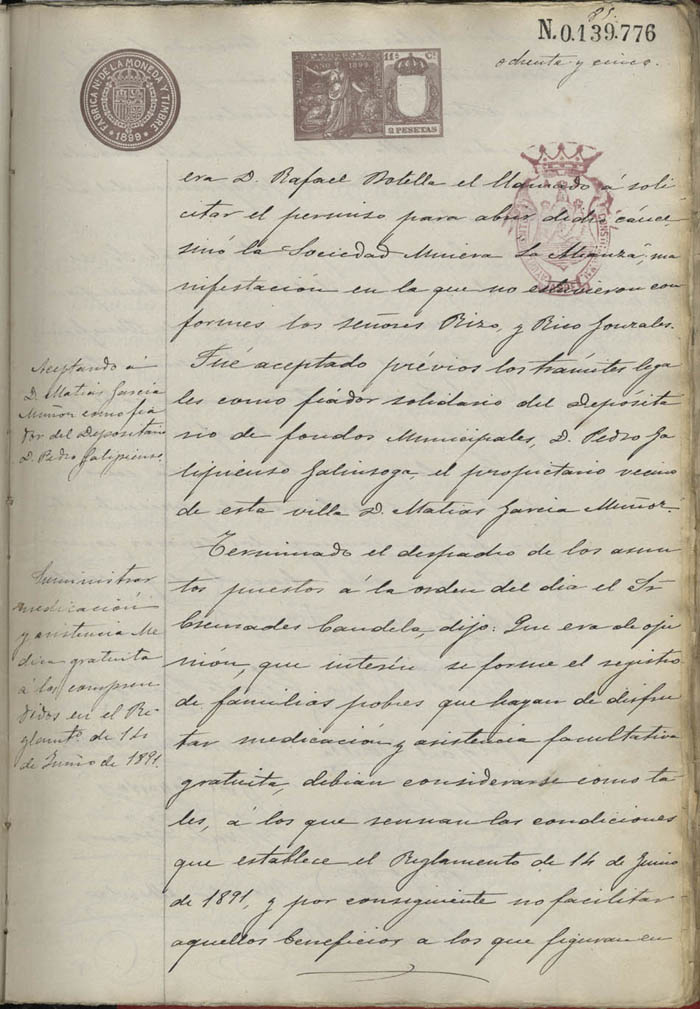 85.
N.0.139.776
ochenta y cinco.
FABRICA Nal. DE LA MONEDA Y TIMBRE
* 1899 *
AÑO 1899.
11ª Cª
2 PESETAS
era D. Rafael Botella el llamado á soli
citar el permiso para abrir dicho cauce,
sinó la Sociedad Minera La Alianza; ma
nifestación en la que no estuvieron con
formes los señores Rizo, y Rico Gonzales.
Aceptando á
D. Matias Garcia
Muñoz como fia
dor del Depositario
D. Pedro Galipienso.
Fué aceptado prévios los trámites lega
les como fiador solidario del Deposita
rio de fondos Municipales, D. Pedro Ga
lipienso Galinsoga, el propietario vecino
de esta villa D. Matias Garcia Muñoz.
Suministrar
medicación
y asistencia Mé
dica gratuita
á los compren
didos en el Re-
glamto. de 14
de Junio de 1891.
Terminado el despacho de los asun
tos puestos á la orden del dia el Sr.
Candela, dijo: Que era de opi
nión, que interin se forme el registro
de familias pobres que hayan de disfru
tar medicación y asistencia facultativa
gratuita, debian considerarse como ta
les, á los que reunan las condiciones
que establece el Reglamento de 14 de Junio
de 1891, y por consiguiente no facilitar
aquellos beneficios a los que figuran en